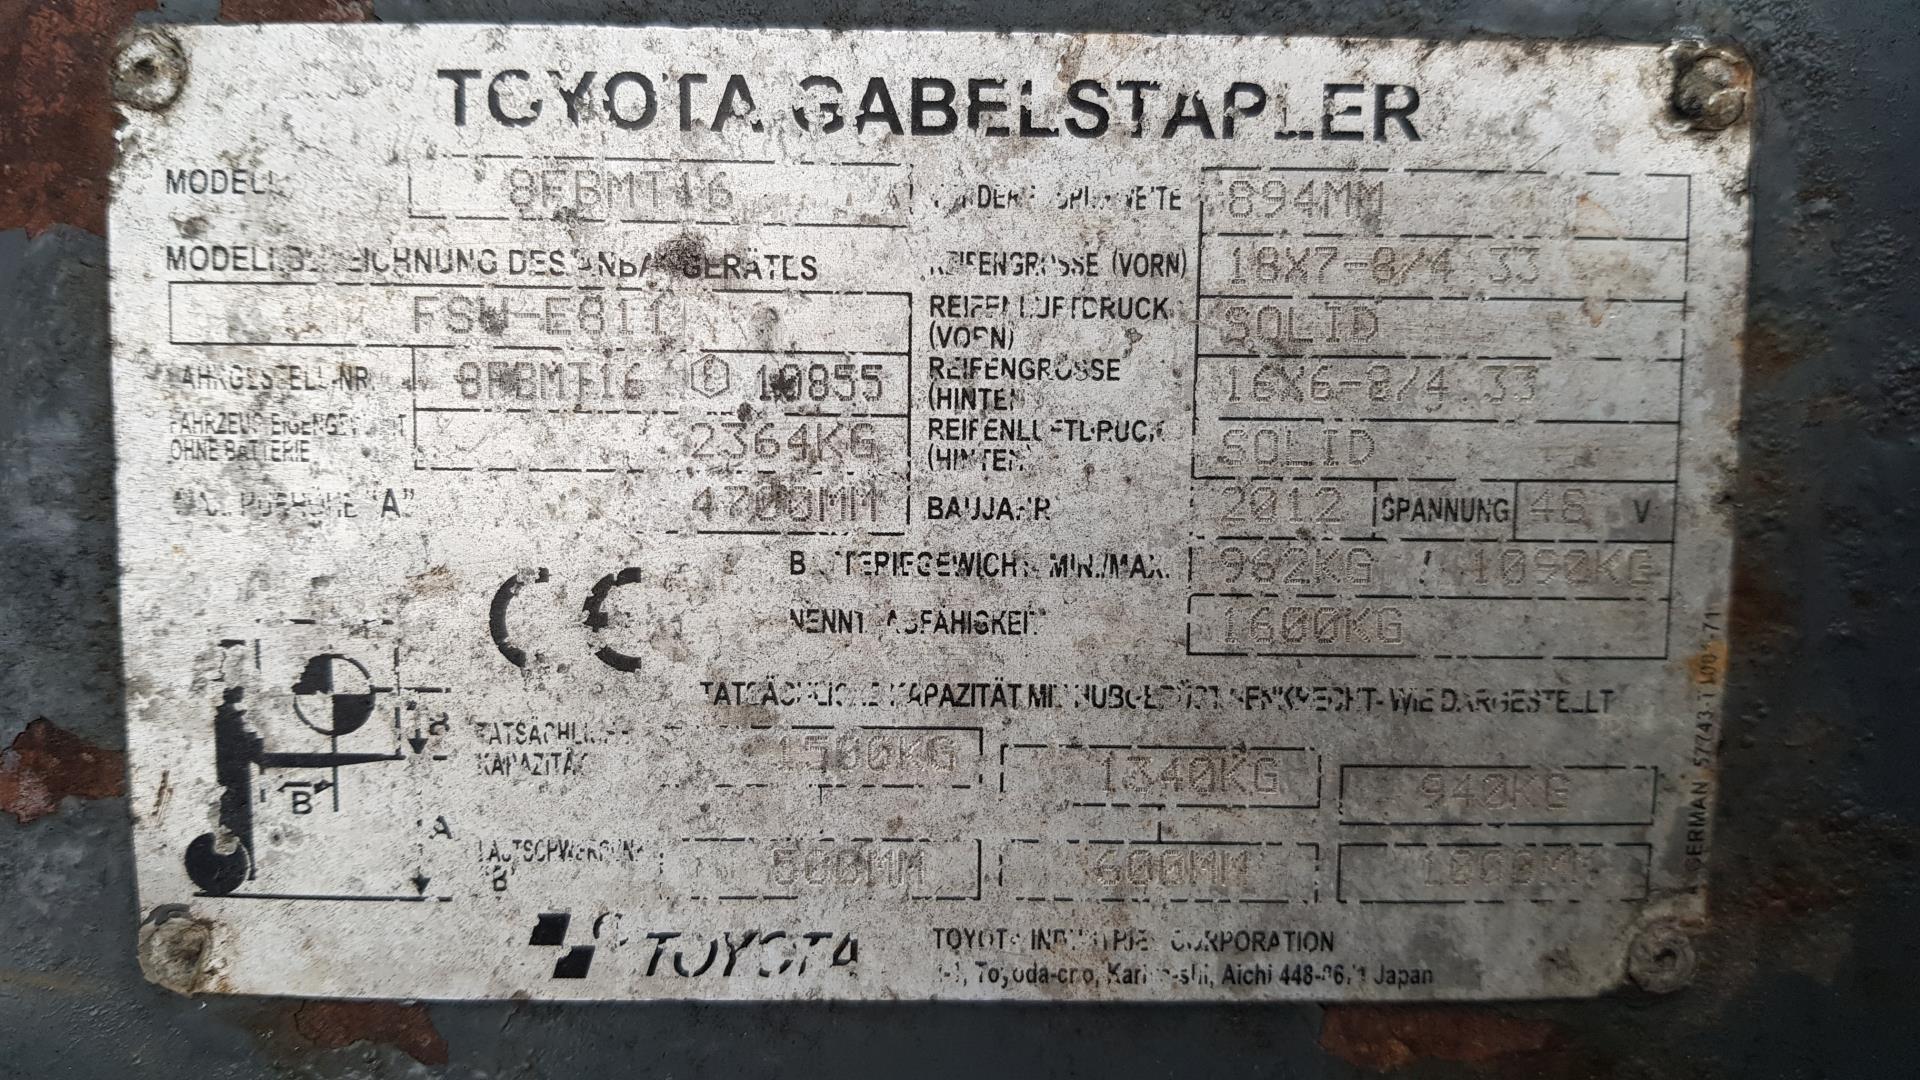 TOYOTA GABELSTAPLER
MODELL 8FBMT16
VORDERE SPURWEITE 894MM
MODELLBEZEICHNUNG DES ANBAUGERÄTES
REIFENGRÖSSE (VORN) 18X7-8/4.33
REIFENLUFTDRUCK (VORN) SOLID
FAHRGESTELL-NR. 8FBMT16 10855
REIFENGRÖSSE (HINTEN) 16X6-8/4.33
FAHRZEUG EIGENGEWICHT OHNE BATTERIE 2364KG
REIFENLUFTDRUCK (HINTEN) SOLID
MAX. HUBHÖHE "A" 4700MM
BAUJAHR 2012 SPANNUNG 48 V
BATTERIEGEWICHT MIN./MAX. 962KG / 1090KG
CE
NENNTRAGFÄHIGKEIT 1600KG
TATSÄCHLICHE KAPAZITÄT MIT HUBGERÜST SENKRECHT-WIE DARGESTELLT
TATSÄCHLICHE KAPAZITÄT 1500KG 1340KG 940KG
B
A
LASTSCHWERPUNKT "B" 500MM 600MM
TOYOTA
TOYOTA INDUSTRIES CORPORATION
Toyoda-cho, Kariya-shi, Aichi 448-8671 Japan
GERMAN